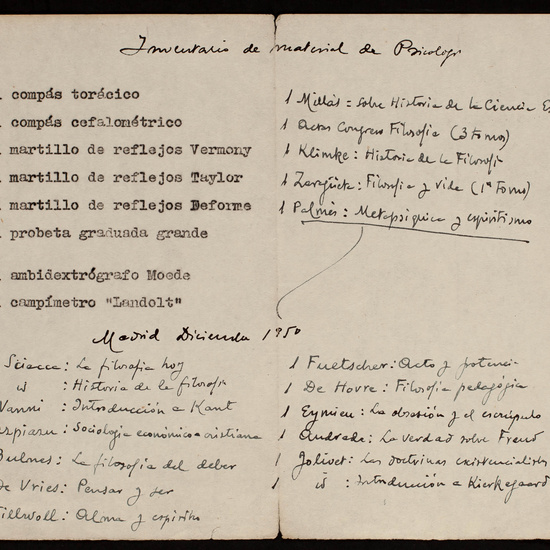 Inventario de material de Psicolog
1 compás torácico
1 compás cefalométrico
1 martillo de reflejos Vermony
1 martillo de reflejos Taylor
1 martillo de reflejos Deforme
1 probeta graduada grande
1 ambidextrógrafo Moede
1 campímetro "Landolt"
1 Millás: sobre Historia de la Ciencia Es
1 Actas Congreso Filosofía (3 tomos)
1 Klimke: Historia de la Filosofí
1 Zaragüeta: Filosofía y vida (1er Tomo)
1 Palmés: Metapsíquica y espiritismo
Madrid Diciembre 1950
Sciacca: La filosofía hoy
id : Historia de la filosofía
Vanni : Introducción a Kant
zpiazu: Sociología económico-cristiana
Bulnes: La filosofía del deber
De Vries: Pensar y ser
Willwoll: Alma y espíritu
1 Fuetscher: Acto y potenci
1 De Hovre: Filosofía pedagógica
1 Eymieu: La obsesión y el escrúpulo
1 Andrade: La verdad sobre Freud
1 Jolivet: Las doctrinas existencialistas
1 id : Introducción a Kierkegaard